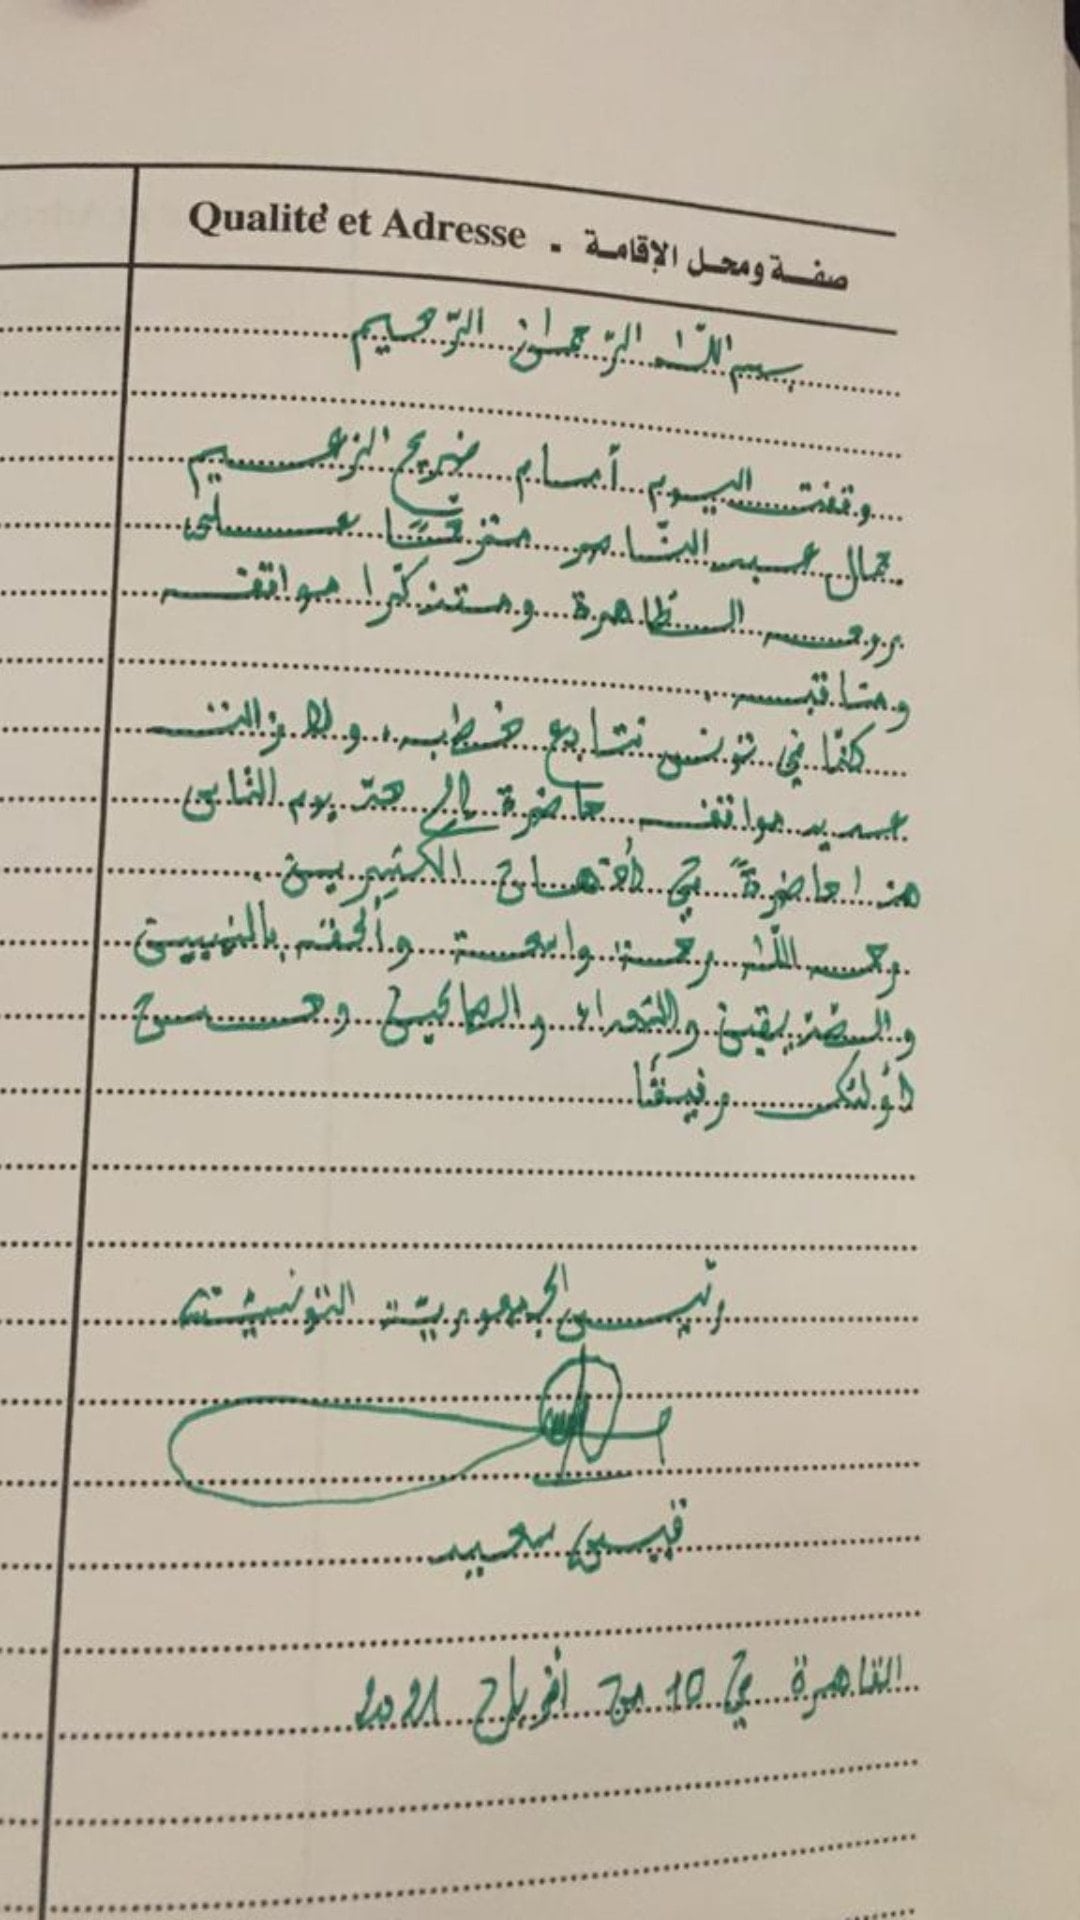 Qualité et Adresse - صفة ومحل الإقامة
بسم اللّٰه الرّحمٰن الرّحيم
وقفت اليوم أمام ضريح الزعيم
جمال عبد النّاصر مترحّمًا على
روحه الطّاهرة ومستذكرا مواقفه
ومناقبه.
كنّا في تونس نتابع خطبه، ولا زالت
عديد مواقفه حاضرة إلى حدّ يوم النّاس
هذا حاضرةً في أذهان الكثيرين.
رحمه اللّٰه رحمة واسعة وألحقه بالنبيين
والصّدّيقين والشهداء والصالحين وحسن
أولئك رفيقًا
رئيس الجمهوريّة التونسيّة
قيس سعيد
القاهرة في 10 من أفريل 2021